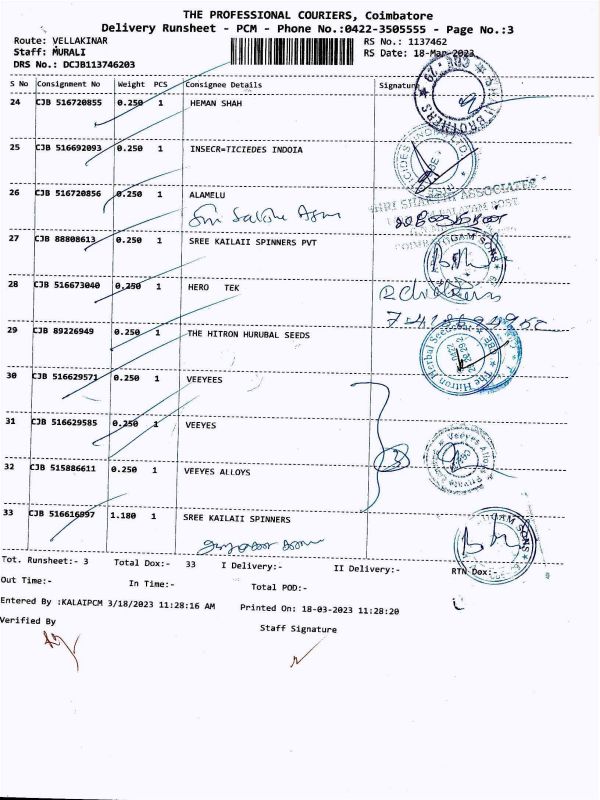 THE PROFESSIONAL COURIERS, Coimbatore
Delivery Runsheet - PCM - Phone No.:0422-3505555 - Page No.:3
Route: VELLAKINAR RS No.: 1137462
Staff: MURALI RS Date: 18-Mar-2023
DRS No.: DCJB113746203
S No Consignment No Weight PCS Consignee Details Signature
24 CJB 516720855 0.250 1 HEMAN SHAH
25 CJB 516692093 0.250 1 INSECR=TICIEDES INDOIA
26 CJB 516720856 0.250 1 ALAMELU
SHRI SHAKTHI ASSOCIATES
27 CJB 88808613 0.250 1 SREE KAILAII SPINNERS PVT
28 CJB 516673040 0.250 1 HERO TEK
29 CJB 89226949 0.250 1 THE HITRON HURUBAL SEEDS
The Hitron Herbal Seeds
30 CJB 516629571 0.250 1 VEEYEES
31 CJB 516629585 0.250 1 VEEYES
32 CJB 515886611 0.250 1 VEEYES ALLOYS
Veeyes Alloys Private Limited
33 CJB 516616997 1.180 1 SREE KAILAII SPINNERS
Tot. Runsheet:- 3 Total Dox:- 33 I Delivery:- II Delivery:- RTN Dox:-
Out Time:- In Time:- Total POD:-
Entered By :KALAIPCM 3/18/2023 11:28:16 AM Printed On: 18-03-2023 11:28:20
Verified By Staff Signature